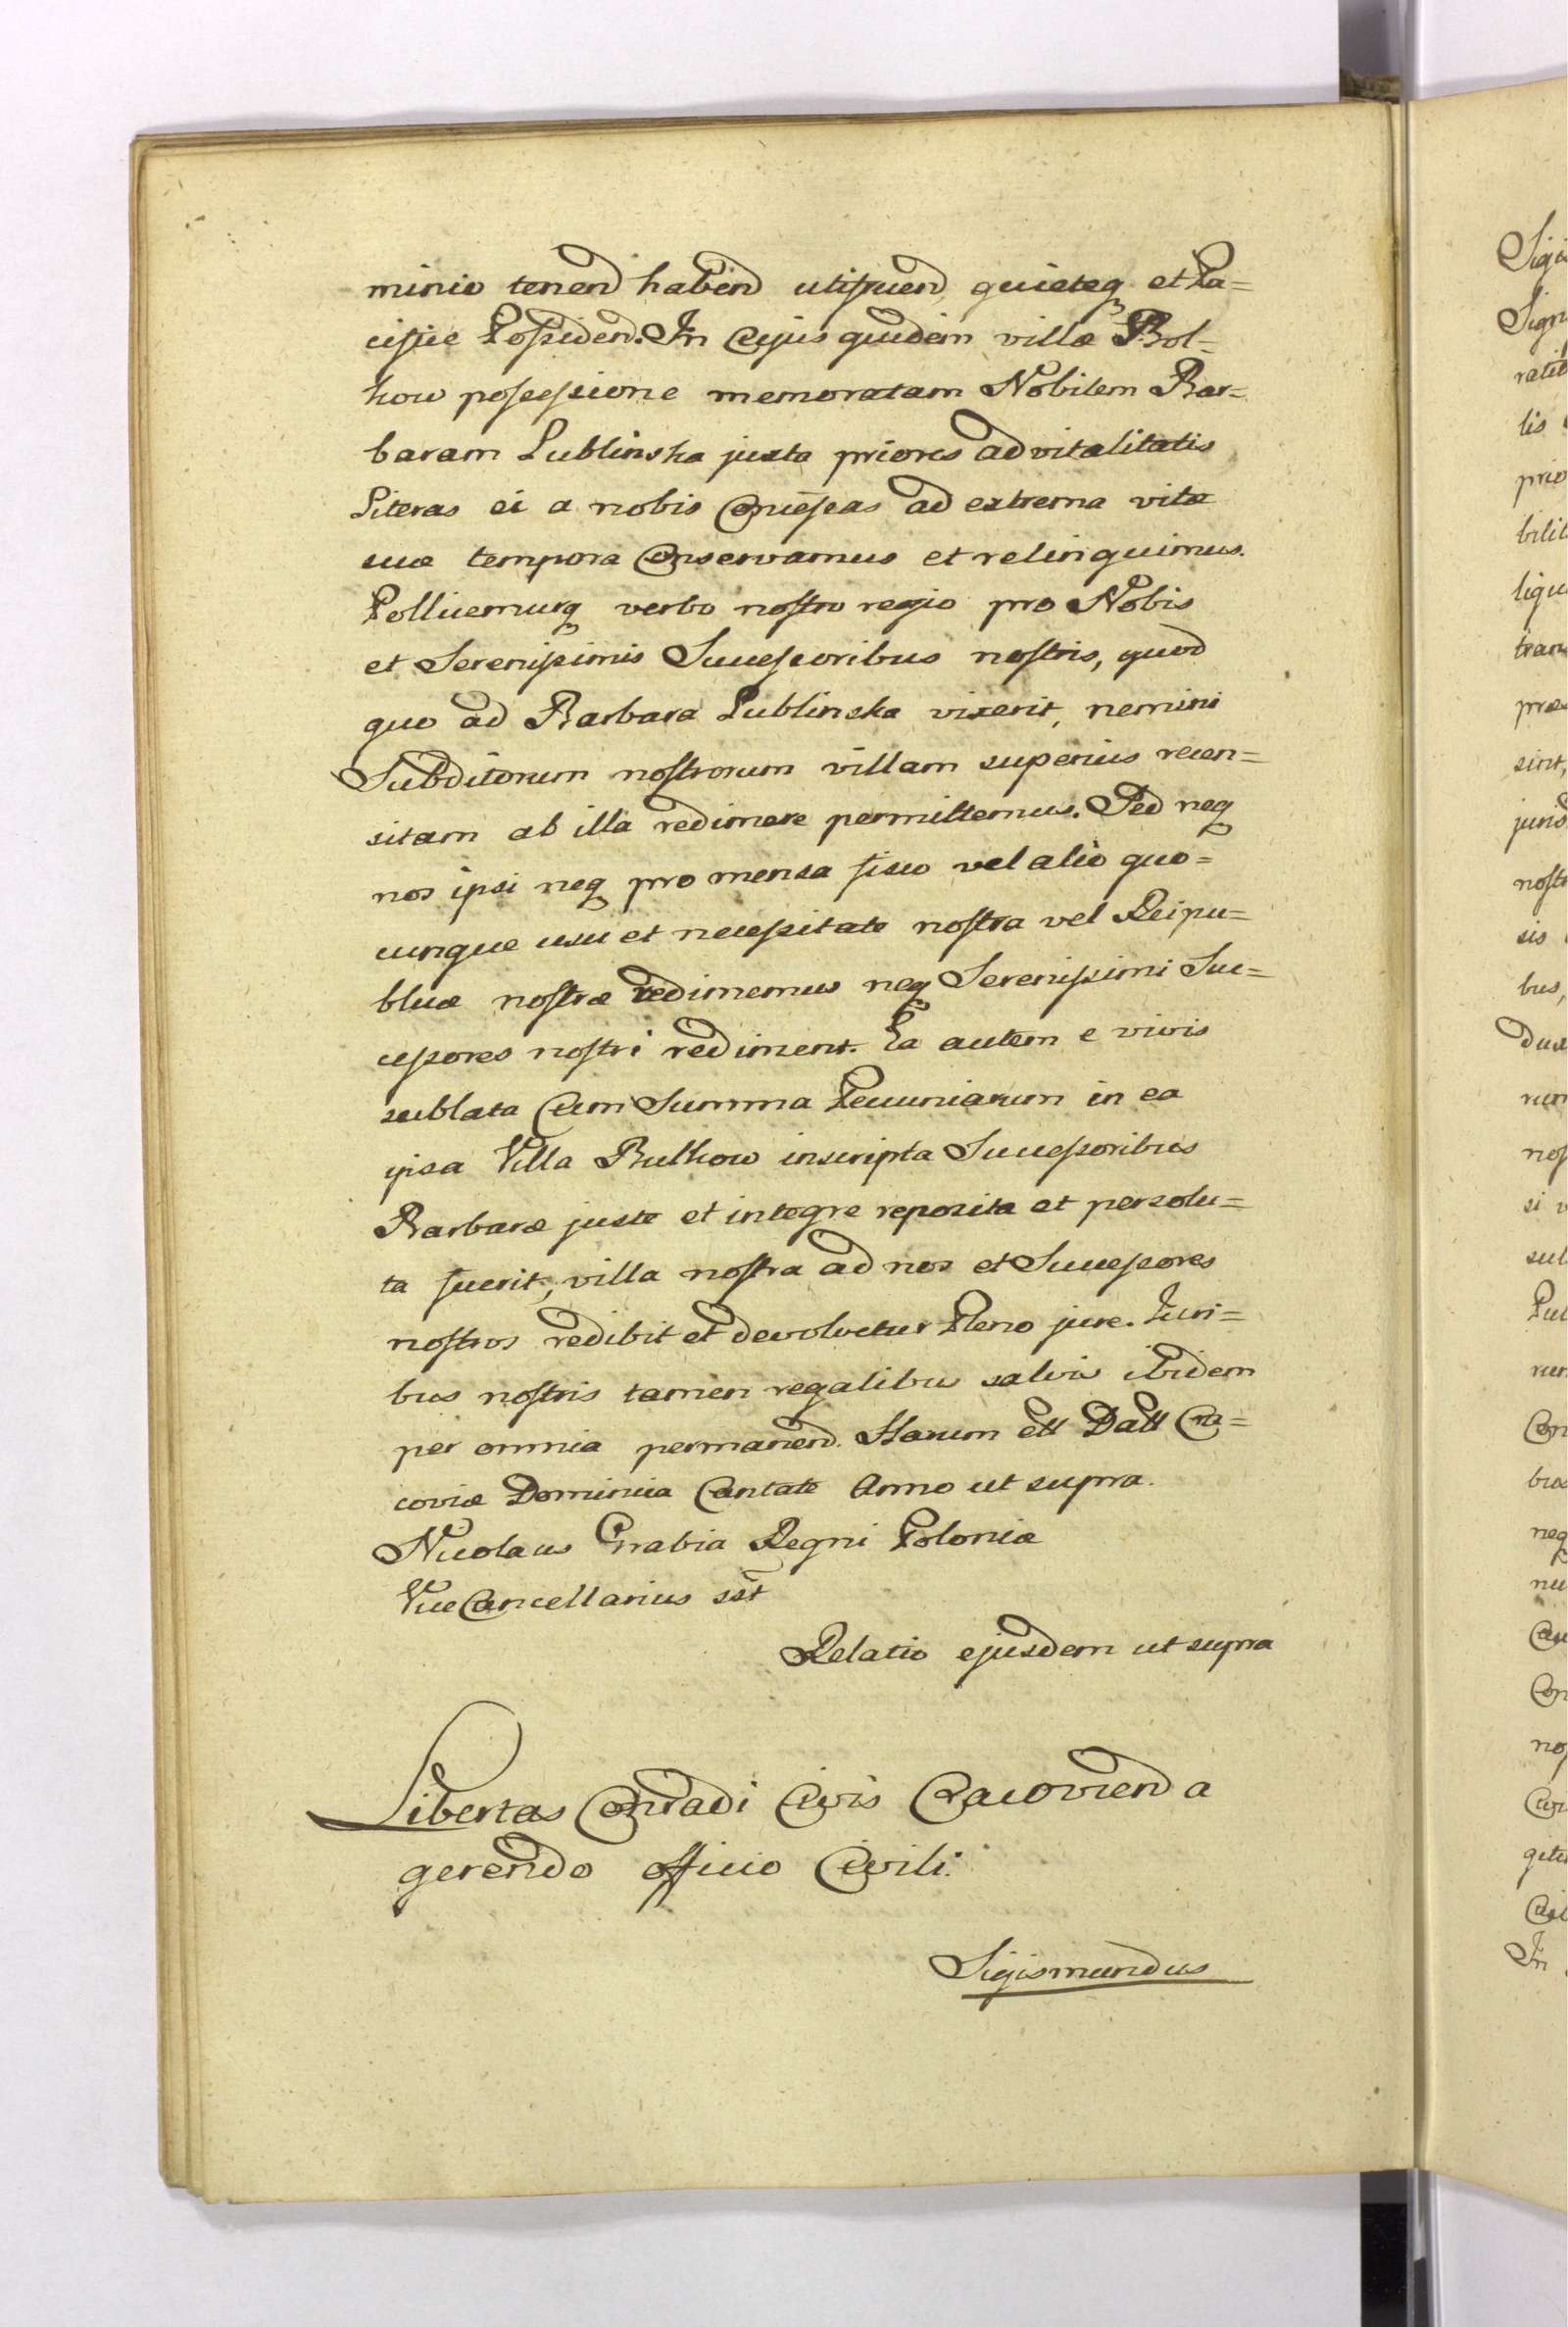 minio tenend habend utifruend quieteq et Pa=
cifice Possidend. In Cujus quidem villæ Bol=
kow possessione memoratam Nobilem Bar=
baram Lublinska juxta priores advitalitatis
Literas ei a nobis Concessas ad extrema vitæ
suæ tempora Conservamus et relinquimus.
Pollicemurq verbo nostro regio pro Nobis
et Serenissimis Successoribus nostris, quod
quo ad Barbara Lublinska vixerit, nemini
Subditorum nostrorum villam superius recen=
sitam ab illa redimere permittemus. Sed neq
nos ipsi neq pro mensa fisco vel alio quo=
cunque usu et necessitate nostra vel Reipu=
blicæ nostræ redimemus neq Serenissimi Suc=
cessores nostri rediment. Ea autem e vivis
sublata Cum Summa Pecuniarum in ea
ipsa Villa Bulkow inscripta Successoribus
Barbaræ juste et integre reposita et persolu=
ta fuerit, villa nostra ad nos et Successores
nostros redibit et devolvetur Pleno jure. Juri=
bus nostris tamen regalibus salvis ibidem
per omnia permanend. Harum ett Datt Cra=
coviæ Dominica Cantate Anno ut supra.
Nicolaus Grabia Regni Poloniæ
ViceCancellarius sst
Relatio ejusdem ut supra
Libertas Conradi Civis Cracoviend a
gerendo officio Civili.
Sigismundus
Sigis
Sign
ratib
lis
prio
bilit
liqu
tran
præ
sint,
juris
nostr
sis
bus,
dux
rum
nos
si v
sul
Pul
rum
Con
bus
neq
nu
Con
nos
Civi
gite
In